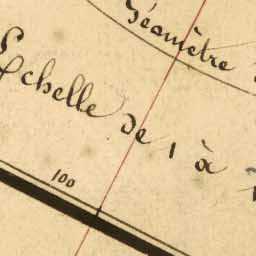 Géomètre
Echelle de 1 à
100